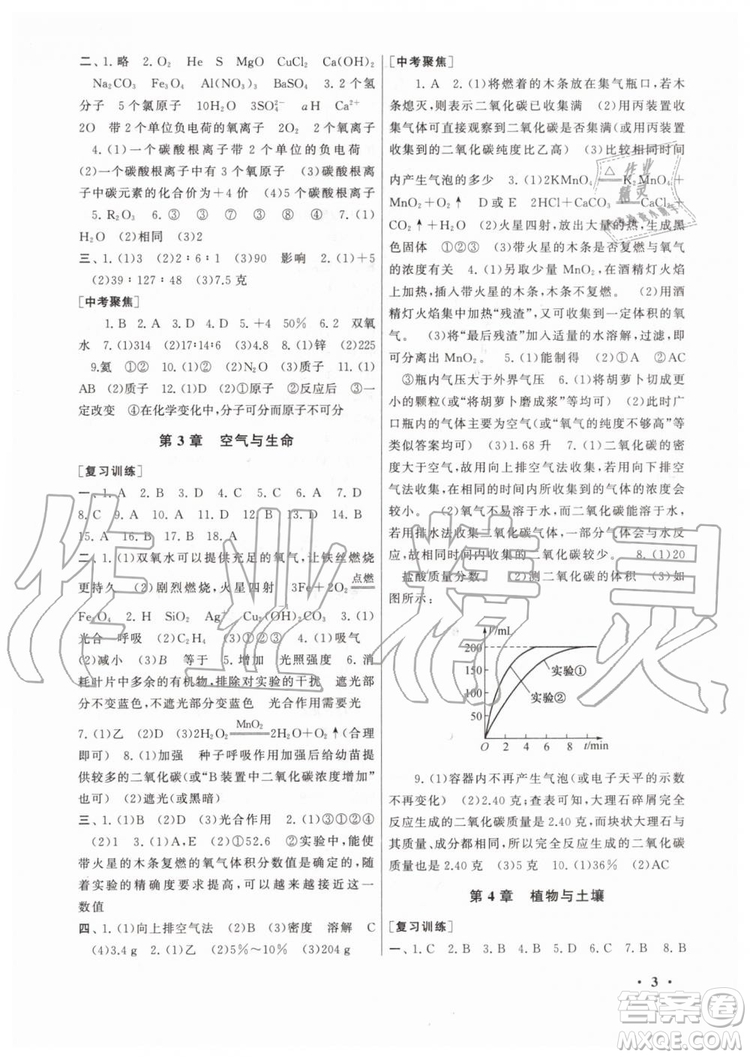 二、1.略 2.O₂ He S MgO CuCl₂ Ca(OH)₂
Na₂CO₃ Fe₃O₄ Al(NO₃)₃ BaSO₄ 3.2个氢
分子 5个氯原子 10H₂O 3SO₄²⁻ aH Ca²⁺
2O 带2个单位负电荷的氧离子
4.(1)一个碳酸根离子带2个单位的负电荷
(2)一个碳酸根离子中有3个氧原子 (3)碳酸根离
子中碳元素的化合价为+4价 (4)一个碳酸根离子
5.R₂O₃ 6.③ ③ ② ④ ① ② 7.(1)
H₂ (2)相同 (3)2
三、1.(1)3 (2)2∶6∶1 (3)90 影响 2.(1)+5
(2)39∶127∶48 (3)7.5克
[中考聚焦]
1.B 2.A 3.A 4.D 5.+4 50% 6.2 双氧
水 7.(1)314 (2)12∶1∶16 8.(1)锌 (2)225
9.氦 ①② (2)N₂O (3)Mg²⁺ 10.(1)
AB (2)质子 ①原子 ②质子 ②反应后 ③一
定改变 ④在化学变化中,分子可分而原子不可分
第3章 空气与生命
[复习训练]
一、1.A 2.B 3.D 4.D 5.C 6.D 7.D
8.C 9.A 10.A 11.B 12.C 13.C 14.B
15.A 16.A 17.D 18.B 19.D
二、1.(1)双氧水可以提供充足的氧气,让铁丝燃烧
更持久 (2)剧烈燃烧,火星四射 3Fe+2O₂ 点燃
Fe₃O₄ 2.H SiO₂ Ag⁺ CuCl₂ 3.(1)
光合 呼吸 (2)C₂H₄ (3)O₂ 4.(1)吸气
(2)减小 (3)B 等于 5.增加 光照强度 6.消
耗叶片中多余的有机物,排除对实验的干扰 遮光部
分不变蓝色,不遮光部分变蓝色 光合作用需要光
7.(1)乙 (2)D (3)2H₂O₂ MnO₂ 2H₂O+O₂↑(合理
即可) 8.(1)加强 种子呼吸作用后给幼苗提
供较多的二氧化碳(或“B装置中二氧化碳浓度增加”
也可) (2)遮光(或黑暗)
三、1.(1)乙 (2)甲 (3)光合作用 2.(1)①③②④
(2)1 (3)乙 3.(1)①52.6 ②实验中,能使
带火星的木条复燃的氧气体积分数值是一定的,随着
实验的精确度要求越高,该数值越趋近于这一定值
(2)D
四、1.(1)向上排空气法 (2)B (3)密度 溶解 C
(4)3.4g 2.(1)乙 (2)5%~10% (3)204g
[中考聚焦]
1.A 2.(1)将燃着的木条放在集气瓶口,若木
条熄灭,则表示二氧化碳已收集满 (2)用丙装置收
集气体可直接观察到二氧化碳是否集满(或用丙装置
收集到的二氧化碳纯度比乙高) (3)比较相同时间
内产生气泡的多少 3.(1)2KMnO₄ △ K₂MnO₄+
MnO₂+O₂↑ D或E (2)2HCl+CaCO₃
CaCl₂+CO₂↑+H₂O (3)火星四射,放出大量的热,生成黑
色固体 ①②③ (2)带火星的木条是否复燃与氧气
的浓度有关 4.(1)取少量MnO₂,在酒精灯火焰
上加热,插入带火星的木条,木条不复燃。 (2)用酒
精灯火焰集中加热“残渣”,又可以收集到较多的氧
气。 (3)将“最后残渣”加入适量的水溶解,过滤,即
可分离出MnO₂。 5.(1)能制得 (2)①A ②AC
③瓶内气压大于外界气压 6.(1)将胡萝卜切成更小
的颗粒(或将胡萝卜磨成浆)等均可 (2)此时广
口瓶内的气体主要为空气(或“氧气的纯度不够”或其他
相似答案均可给分) (3)1.68升 7.(1)二氧化碳的密
度大于空气,能用向上排空气法收集,但用排空
气法收集,经常因为混有空气而使收集到的气体的浓度
较小。 (2)氧气不易溶于水,而二氧化碳能溶于水,
若用排水法收集二氧化碳气体,一部分气体会与水反
应,相同时间内收集的二氧化碳较少。 8.(1)20
盐酸质量分数 (2)测二氧化碳的体积 (3)如
图所示:
V/ml
200
150
100
50
实验①
实验②
O 2 4 6 8 t/min
9.(1)容器内不再产生气泡(或电子天平的示数
不再变化) (2)2.40 克;查表可知,大理石碎屑完全
反应生成的二氧化碳质量为2.40克,而块状大理石的
质量、成分都与其相同,所以完全反应生成的二氧化碳
质量也是2.40克 (3)C 10.(1)36% (2)AC
第4章 植物与土壤
[复习训练]
一、1.C 2.B 3.B 4.A 5.D 6.B 7.B 8.B
· 3 ·
作业精灵
答案圈
MXQE.COM